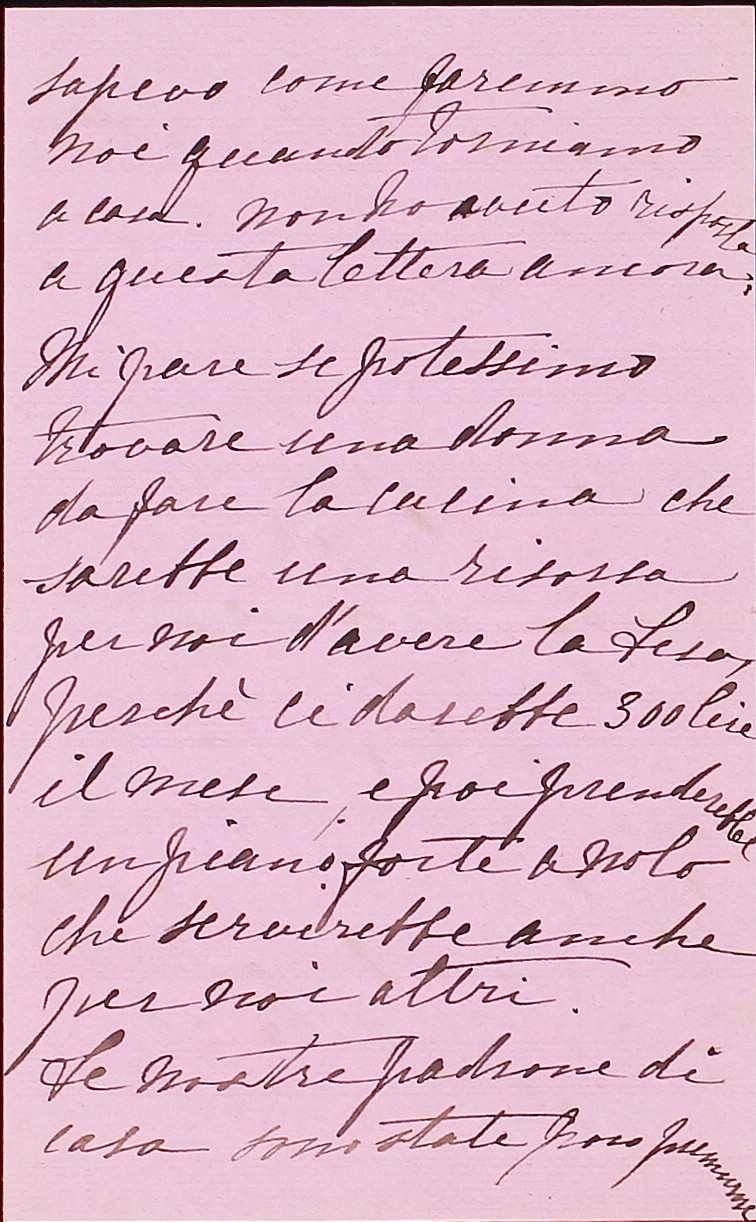 sapevo come faremmo
noi quando torniamo
a casa. non ho avuto risposta
a questa lettera ancora.
Mi pare se potessimo
trovare una donna
da fare la cucina che
sarebbe una risorsa
per noi d'avere la
perchè ci darebbe 300 lire
il mese, e poi prenderebbe
un piano forte a nolo
che servirebbe anche
per noi altri.
Le nostre padrone di
casa sono state poco premurose